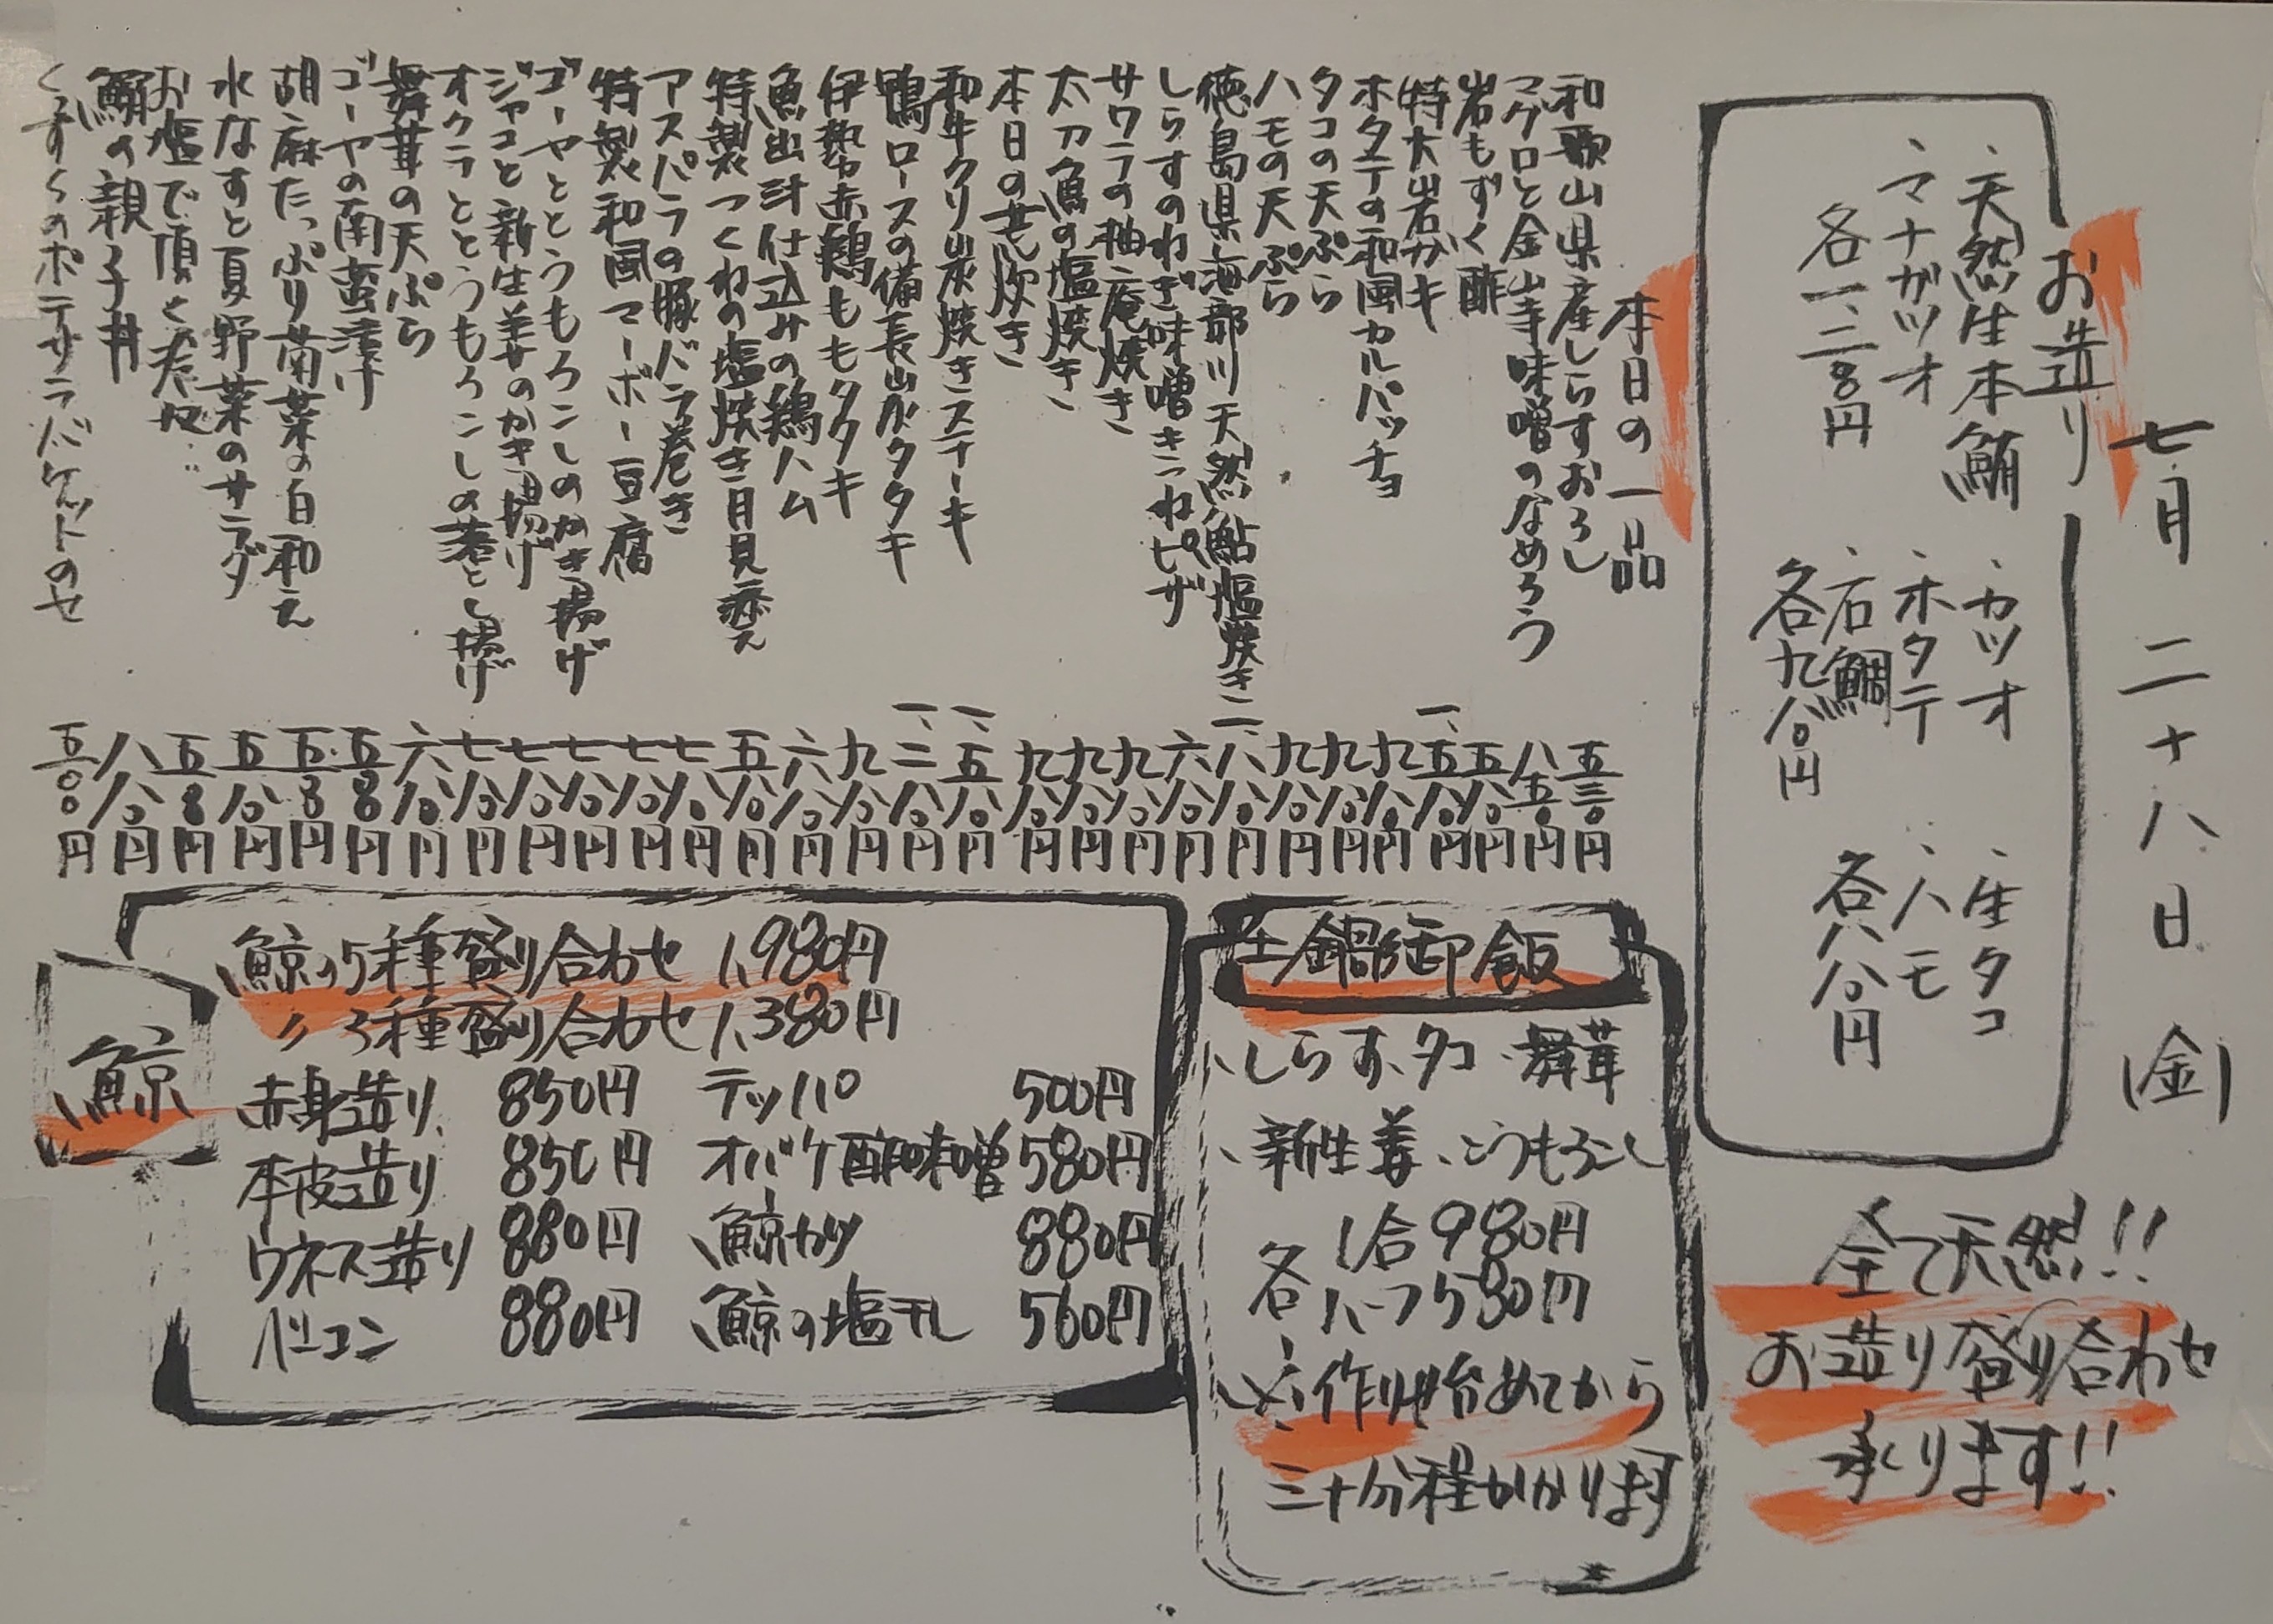 七月二十八日(金)
お造り
・天然生本鮪
・マナガツオ
・カツオ
・ホタテ
・石鯛
各九八〇円
・生タコ
・ハモ
各八八〇円
全て天然!!
お造り盛り合わせ
承ります!!
本日の一品
和歌山県産しらすおろし 五三〇円
マグロと金山寺味噌のなめろう 八五〇円
岩もずく酢 五八〇円
特大岩ガキ 一、五八〇円
ホタテの和風カルパッチョ 九八〇円
タコの天ぷら 九八〇円
ハモの天ぷら 九八〇円
徳島県海部川天然鮎塩焼き
しらすのねぎ味噌きつねピザ 六八〇円
サワラの柚庵焼き 九八〇円
太刀魚の塩焼き 九八〇円
本日の煮炊き 九八〇円
和牛クリ炭焼きステーキ 一、五八〇円
鴨ロースの備長炭タタキ 一、二八〇円
伊勢赤鶏ももタタキ 九八〇円
魚出汁仕込みの鶏ハム 六八〇円
特製つくねの塩焼き月見添え 五八〇円
アスパラの豚バラ巻き 七八〇円
特製和風マーボー豆腐 七八〇円
ゴーヤととうもろこしのかき揚げ 七八〇円
ジャコと新生姜のかき揚げ 七八〇円
オクラととうもろこしの落とし揚げ 七八〇円
舞茸の天ぷら 六八〇円
ゴーヤの南蛮漬け 五八〇円
胡麻たっぷり菊菜の白和え
水なすと夏野菜のサラダ 五八〇円
お塩で頂く
鯛の親子丼 八八〇円
くずし〱のポテサラバケットのせ 五〇〇円
土鍋御飯
・しらす・タコ・舞茸
・新生姜・とうもろこし
各 1合 980円
ハーフ 530円
※作り始めてから
三十分程かかります
鯨
鯨の5種盛り合わせ 1,980円
〃 3種盛り合わせ 1,380円
赤身造り 850円 テッパ 500円
本皮造り 850円 オバケ酢味噌 580円
ウネス造り 880円 鯨カツ 880円
ベーコン 880円 鯨の塩干し 560円